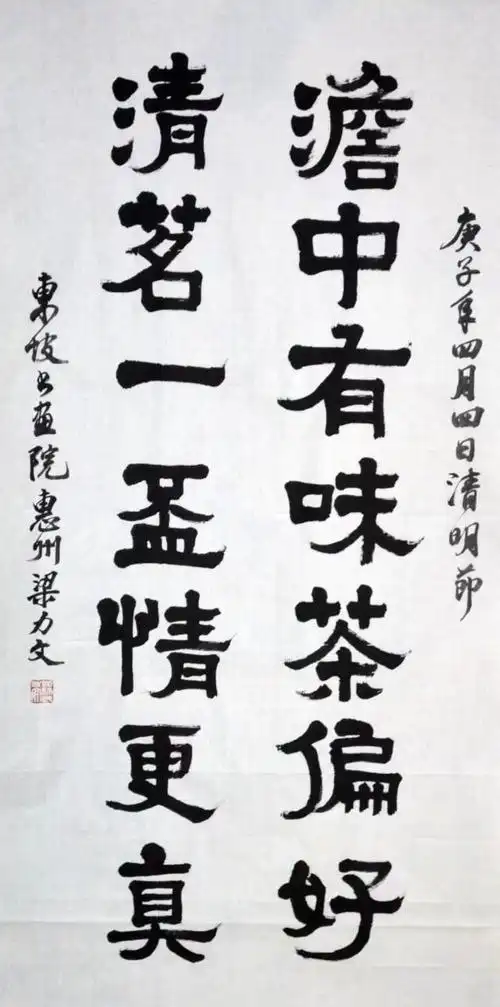 庚子年四月四日清明節
澹中有味茶偏好
清茗一盃情更真
東坡书畫院惠州梁力文